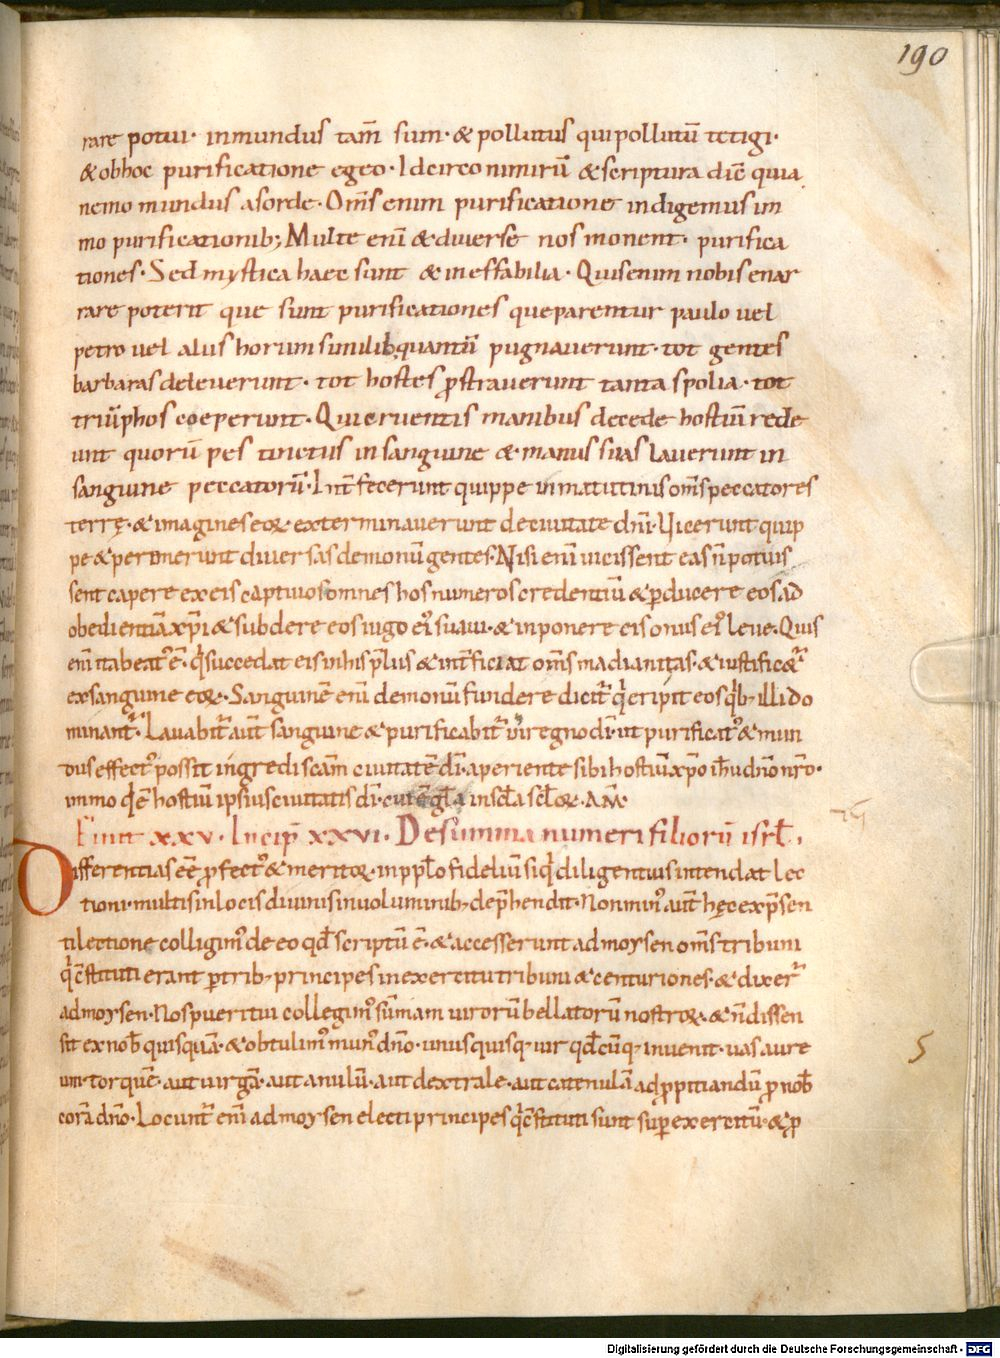 190
rare potui· inmundus tam̄ sum· & pollutus quipollutū tetigi·
& obhoc purificatione egeo· Idcirco nimirū & scriptura dic̄ quia
nemo mundus asorde· Om̄s enim purificatione indigemus im
mo purificationib; Multe enī & diuerse nos monent· purifica
tiones· Sed mystica haec sunt & ineffabilia· Quis enim nobis enar
rare poterit que sunt purificationes que parentur paulo uel
petro uel aliis horum similib; quantū pugnauerunt· tot gentes
barbaras deleuerunt· tot hostes ꝓstrauerunt tanta spolia· tot
triūphos coeperunt· Qui eruentis manibus decede hostiū rede
unt quorū pes tinctus in sanguine & manus suas lauerunt in
sanguine peccatorū· Int̄fecerunt quippe in matutinis om̄s peccatores
terrę· & imagines eoꝝ exterminauerunt deciuitate dn̄i· Vicerunt quip
pe & peremerunt diuersas demonū gentes· Nisi enī uicissent eas n̄ potuis
sent capere ex eis captiuos omnes hos numeros credentiū & ꝑducere eos ad
obedientiā xp̄i & subdere eos iugo ei᾽ suaui· & inponere eis onus ei᾽ leue· Quis
enī ita beat᾽ ē· q̄ succedat eis in his p̄lus & int̄ficiat om̄s madianitas· & iustificet᾽
ex sanguine eoꝝ· Sanguinē enī demonū fundere dicit᾽ q̄ eripit eos qb; illi do
minant᾽· Lauabit᾽ aūt sanguine & purificabit᾽ ūregno dī· ut purificat᾽ & mun
dus effect᾽ possit ingredi scām ciuitatē dī· aperiente sibi hostiū xp̄o ih̄u dn̄o nr̄o·
immo q̄ ē hostiū ipsius ciuitatis dī· cui ē gl̄a in scl̄a scl̄oꝝ· AM̄·
Finit xxv· Incip̄ xxvi· De summa numeri filiorū isrl̄·
Differentias eē ꝓfect᾽ & meritoꝝ· in pp̄lo fideliū siq̄ diligentius intendat lec
tioni· multis in locis diuinis in uoluminib; dep̄hendit· Non min᾽ aūt hęc ex p̄sen
ti lectione colligim᾽ de eo qd̄ scriptū ē· & accesserunt ad moysen om̄s tribuni
q̄ c̄stituti erant ꝑ trib; principes in exercitu tribuni & centuriones· & dixer᾽
ad moysen· Nos pueri tui collegim᾽ sūmam uirorū bellatorū nostroꝝ· & n̄ dissen
sit ex nob̄ quisquā· & obtulim᾽ mun᾽ dn̄o· unusquisq; uir qd̄cūq; inuenit· uas aure
um· torquē· aut uirgā· aut anulū· aut dextrale· aut catenulā ad ꝓpitiandū ꝓ nob̄
corā dn̄o· Locunt᾽ enī ad moysen electi principes q̄ c̄stituti sunt sup̄ exercitū· & ꝓ
5
Digitalisierung gefördert durch die Deutsche Forschungsgemeinschaft · DFG